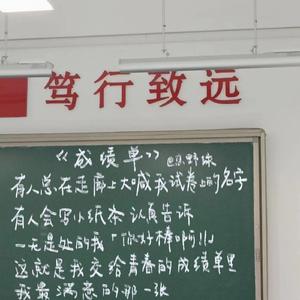 笃行致远
《成绩单》
有人总在走廊上大喊我试卷上的名字
有人会写小纸条认真告诉
一无是处的我「你好棒啊!!」
这就是我交给青春的成绩单里
我最满意的那一张